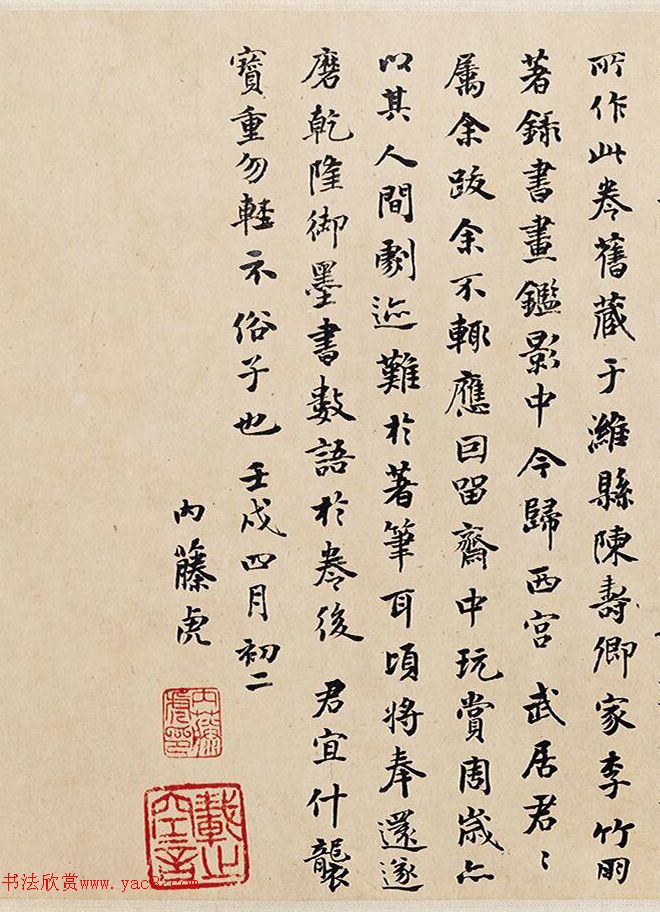 所作此卷舊藏于濰縣陳壽卿家李竹朋
著錄書畫鑑影中今歸西宮武居君〻
属余跋余不輒應回留齋中玩賞周歲亦
以其人間劇迹難於著筆耳頃將奉還遂
磨乾隆御墨書數語於卷後 君宜什襲
寶重勿輕示俗子也壬戌四月初二
內藤虎
內藤虎印
載之空言
书法欣赏www.yac8.com